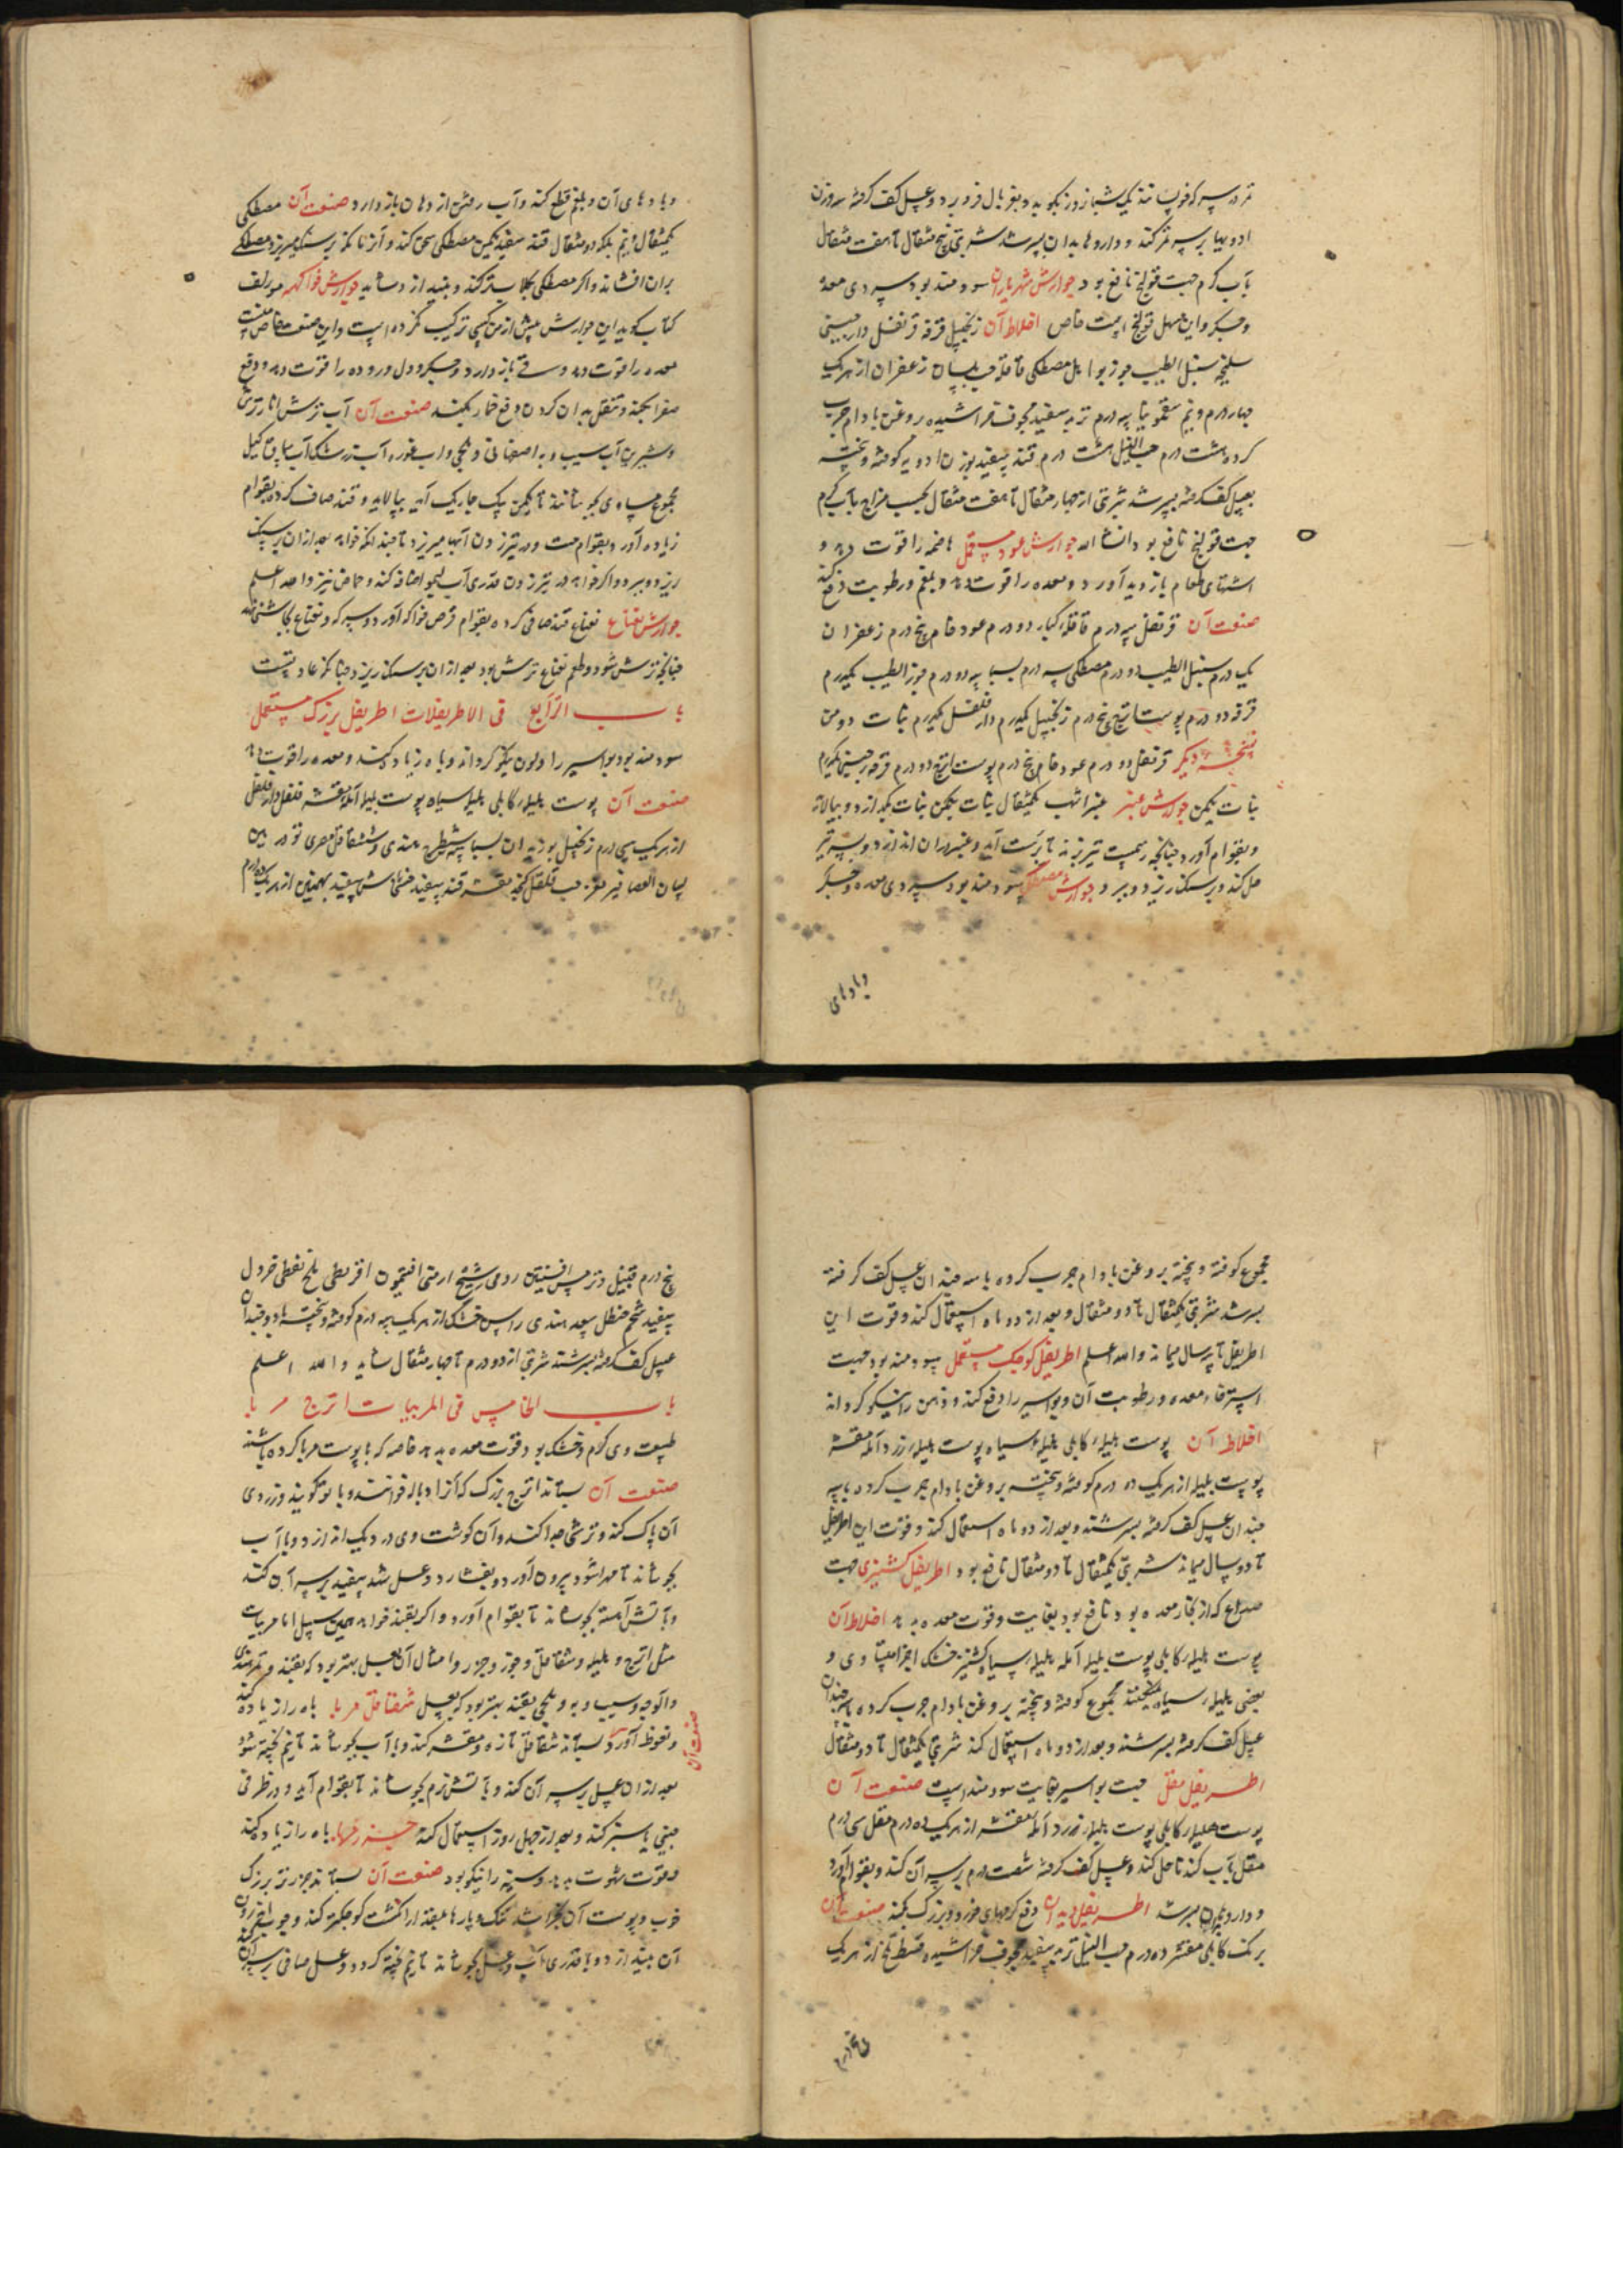 تر در سرکه خوبسانند یک شبانروز بکوبد و بغربال فرو برد و عسل کف گرفته سه وزن
ادویه بر سر کند و داروها بدان بسرشد شربتی پنج مثقال تا هفت مثقال
بآب گرم جهت قولنج نافع بود جوارش شهریاران سودمند بود سردی معده
و جکر و این مسهل قولنج است خاص اخلاط آن زنجبیل قرفه قرنفل دارچینی
سلیخه سنبل الطیب جوز بوا هل مصطکی قاقله حب بلسان زعفران از هر یک
چهار درم و نیم سقمونیا سه درم تربد سفید مجوف خراشیده بروغن بادام چرب
کرده هشت درم حب النیل هشت درم قند سفید بوزن ادویه کوفته و بیخته
بعسل کف گرفته بسرشد شربتی از چهار مثقال تا هفت مثقال بحسب مزاج بآب گرم
جهت قولنج نافع بود انشاالله جوارش عود مستعمل هاضمه را قوت دهد و
اشتهای طعام بازدید آورد و معده را قوت دهد و بلغم و رطوبت دفع کند
صنعت آن قرنفل سه درم قاقله کبار دو درم عود خام پنج درم زعفران
یک درم سنبل الطیب دو درم مصطکی سه درم بسباسه دو درم جوز الطیب یکدرم
قرفه دو درم پوست اترج پنج درم زنجبیل یکدرم دارفلفل یکدرم نبات دو من
نسخه دیگر قرنفل دو درم عود خام پنج درم پوست اترج دو درم قرفه دارچینی یکدرم
نبات یکمن جوارش عنبر عنبر اشهب یکمثقال نبات یکمن نبات بگدازد و بپالاند
و بقوام آورد چنانچه رسمست تیز بزند تا برست آید و عنبر در آن اندازد و بسر تیر
حل کند و بر سنک ریزد و ببرد جوارش مصطکی سودمند بود سردی معده و جکر
وبادهای
وبادهای آن و بلغم قطع کند و آب رفتن از دهان باز دارد صنعت آن مصطکی
یکمثقال و نیم بلکه دو مثقال قند سفید یکمن مصطکی سحق کند و آنزمانکه بر سنک میریزد مصطکی
بران افشاند و اکر مصطکی بکلاب تر کند و بیندازد شاید جوارش فواکه مولف
کتاب کوید این جوارش پیش از من کسی ترکیب نکرده است و این صنعت خاص منست
معده را قوت دهد و قی باز دارد و جکر و دل و روده را قوت دهد و دفع
صفرا بکند و تنقل بدان کردن دفع خمار بکند صنعت آن آب ترش انار ترش
و شیرین آب سیب و به اصفهانی و بلخی و آب غوره آب زرشک آب سماق کیل
مجموع مساوی بجوشانند تا یکمن بچاریک آید بپالاید و قند صاف کرده بقوام
زیاده آورد و بقوام مست و در تیز زدن آبها میریزد تا چندانکه خواهد بعد از آن بر سنک
ریزد و ببرد و اکر خواهد در تیز زدن قدری آب لیمو اضافه کند و حماض نیز والله اعلم
جوارش نعناع نعناع قند صافی کرده بقوام قرص فواکه آورد و سرکه و نعناع بجاشنی نهد
چنانچه ترش شود و طعم نعناع ترش بود بعد از آن بر سنک ریزد چنانکه عادتست
باب الرابع فی الاطریفلات اطریفل بزرک مستعمل
سودمند بود بواسیر را و لون نیکو گرداند و باه زیاد کند و معده را قوت دهد
صنعت آن پوست هلیله کابلی هلیله سیاه پوست بلیله آمله مقشر فلفل دارفلفل
از هر یک سی درم زنجبیل بوزیدان بسباسه شیطرج هندی شقاقل مصری تودرین
لسان العصافیر مغز حب قلقل کنجد مقشر قند سفید خشخاش سفید بهمنین از هر یک ده درم
مجموع کوفته و بیخته بروغن بادام چرب کرده با سه چندان عسل کف گرفته
بسرشد شربتی یکمثقال تا دو مثقال و بعد از دو ماه استعمال کند و قوت این
اطریفل تا سه سال میماند والله اعلم اطریفل کوچک مستعمل سودمند بود جهت
استرخاء معده و رطوبت آن و بواسیر را دفع کند و ذهن را نیکو گرداند
اخلاط آن پوست هلیله کابلی هلیله سیاه پوست هلیله زرد آمله مقشر
پوست بلیله از هر یک ده درم کوفته و بیخته بروغن بادام چرب کرده با سه
چندان عسل کف گرفته بسرشند و بعد از دو ماه استعمال کند و قوت این اطریفل
تا دو سال میماند شربتی یکمثقال تا دو مثقال نافع بود اطریفل کشنیزی جهت
صداع که از بخار معده بود نافع بود بغایت و قوت معده بدهد اخلاط آن
پوست هلیله کابلی پوست بلیله آمله هلیله سیاه کشنیز خشک اجزا مساوی و
بعضی هلیله سیاه نکنند مجموع کوفته و بیخته بروغن بادام چرب کرده با سه چندان
عسل کف گرفته بسرشند و بعد از دو ماه استعمال کند شربتی یکمثقال تا دو مثقال
اطریفل مقل جهت بواسیر بغایت سودمند است صنعت آن
پوست هلیله کابلی پوست هلیله زرد آمله مقشر از هر یک ده درم مقل سی درم
مقل بآب کندنا حل کند و عسل کف گرفته شصت درم بر سر آن کند و بقوام آورد
و دارو بدان بسرشد اطریفل دیدان دفع کرمهای خورد و بزرک بکند صنعت آن
برنک کابلی مقشر ده درم حب النیل تربد سفید مجوف خراشیده قسط تلخ از هر یک
پنج درم
پنج درم قنبیل و ترمس افسنتین رومی شیح ارمنی افتیمون اقریطی ملح نفطی خردل
سفید شحم حنظل سعد هندی راسن خشک از هر یک سه درم کوفته و بیخته با دو چندان
عسل کف گرفته بسرشند شربتی از دو درم تا چهار مثقال شاید والله اعلم
باب الخامس فی المربیات اترج مربا
طبیعت وی گرم و خشک بود قوت معده بدهد خاصه که با پوست مربا کرده باشند
صنعت آن بستاند اترج بزرک که آنرا دباله خوانند و بالو کویند و زردی
آن پاک کند و ترشی جدا کند و آن کوشت وی در دیک اندازد و با آب
بجوشاند تا مهرا شود بیرون آورد و بیفشارد و عسل شهد سفید بر سر آن کند
و بآتش آهسته بجوشاند تا بقوام آورد و اکر بقند خواهد همین سبیل اما مربیات
مثل اترج و هلیله و شقاقل و جوز و جزر و امثال آن بعسل بهتر بود که بقند و تمر هندی
و آلوچه و سیب و به و بلحی بقند بهتر بود که بعسل شقاقل مربا باه را زیاده کند
و نعوظ آورد بستاند شقاقل تازه و مقشر کند و با آب بجوشاند تا نیم پخته شود
صنعت آن
بعد از آن عسل بر سر آن کند و بآتش نرم بجوشاند تا بقوام آید و در ظرفی
چینی یا سبز کند و بعد از چهل روز استعمال کند جزر مربا باه را زیاده کند
و قوت شهوت بدهد و سینه را نیکو بود صنعت آن بستاند جزر تر بزرک
خوب و پوست آن بخراشد تنک و پارها بقدر انکشت کوچکتر کند و چوب اندرون
آن بیندازد و با قدری آب و عسل بجوشاند تا نیم پخته کردد و عسل صافی بر سر آن کند